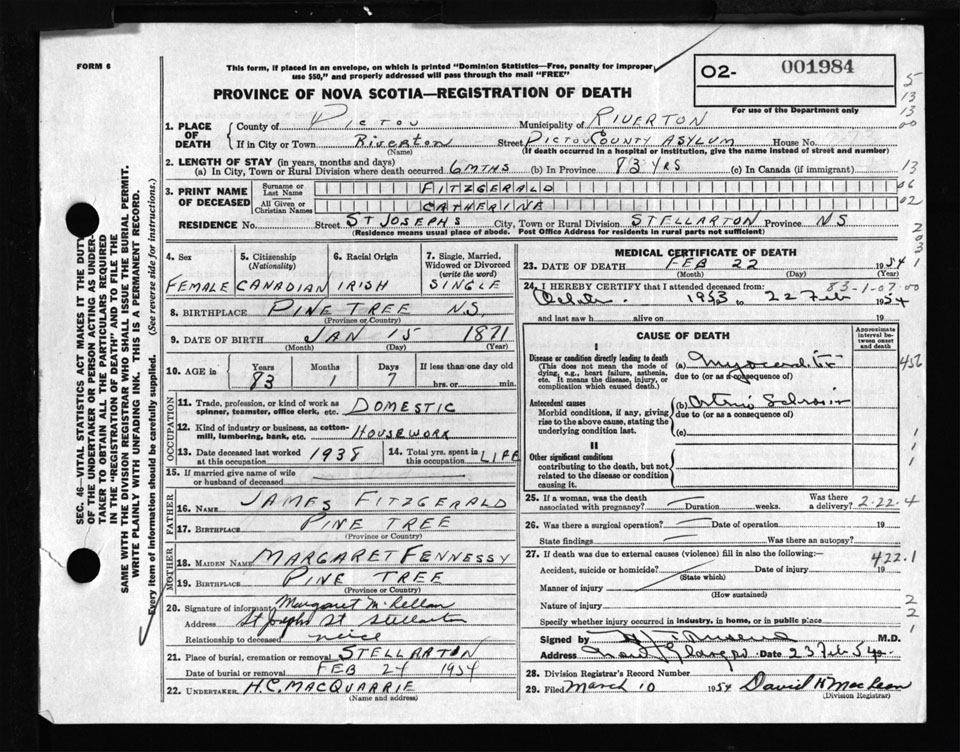 FORM 6
This form, if placed in an envelope, on which is printed "Dominion Statistics—Free, penalty for improper
use $50," and properly addressed will pass through the mail "FREE"
O2- 001984
For use of the Department only
PROVINCE OF NOVA SCOTIA—REGISTRATION OF DEATH
1. PLACE OF DEATH County of PICTOU Municipality of RIVERTON
If in City or Town RIVERTON Street PICTOU COUNTY ASYLUM House No.
(Name) (If death occurred in a hospital or institution, give the name instead of street and number)
2. LENGTH OF STAY (in years, months and days)
(a) In City, Town or Rural Division where death occurred 6 MTHS (b) In Province 83 YRS (c) In Canada (if immigrant)
3. PRINT NAME OF DECEASED Surname or Last Name FITZGERALD
All Given or Christian Names CATHERINE
RESIDENCE No. Street ST JOSEPHS City, Town or Rural Division STELLARTON Province NS
(Residence means usual place of abode. Post Office Address for residents in rural parts not sufficient)
4. Sex FEMALE
5. Citizenship (Nationality) CANADIAN
6. Racial Origin IRISH
7. Single, Married, Widowed or Divorced (write the word) SINGLE
8. BIRTHPLACE PINE TREE N.S.
(Province or Country)
9. DATE OF BIRTH JAN 15 1871
(Month) (Day) (Year)
10. AGE in Years Months Days If less than one day old
83 1 7 hrs. or min.
OCCUPATION
11. Trade, profession, or kind of work as spinner, teamster, office clerk, etc. DOMESTIC
12. Kind of industry or business, as cotton-mill, lumbering, bank, etc. HOUSEWORK
13. Date deceased last worked at this occupation 1938
14. Total yrs. spent in this occupation LIFE
15. If married give name of wife or husband of deceased
FATHER
16. NAME JAMES FITZGERALD
17. BIRTHPLACE PINE TREE
(Province or Country)
MOTHER
18. MAIDEN NAME MARGARET FENNESSY
19. BIRTHPLACE PINE TREE
(Province or Country)
20. Signature of informant Margaret McLellan
Address St Josephs St Stellarton
Relationship to deceased neice
21. Place of burial, cremation or removal STELLARTON
Date of burial or removal FEB 24 1954
22. UNDERTAKER H.C. MACQUARRIE
MEDICAL CERTIFICATE OF DEATH
23. DATE OF DEATH FEB 22 1954
(Month) (Day) (Year)
83-1-07
24. I HEREBY CERTIFY that I attended deceased from:
1953 to 22 Feb 1954
and last saw h alive on 19
CAUSE OF DEATH
Approximate interval between onset and death
I
Disease or condition directly leading to death
(This does not mean the mode of dying, e.g., heart failure, asthenia, etc. It means the disease, injury, or complication which caused death.)
(a) Myocarditis
due to (or as a consequence of)
Antecedent causes
Morbid conditions, if any, giving rise to the above cause, stating the underlying condition last.
(b) Arterio Sclerosis
due to (or as a consequence of)
(c)
II
Other significant conditions
contributing to the death, but not related to the disease or condition causing it.
25. If a woman, was the death associated with pregnancy? Duration weeks. Was there a delivery? 2-22-4
26. Was there a surgical operation? Date of operation 19
State findings Was there an autopsy?
27. If death was due to external causes (violence) fill in also the following:—
422.1
Accident, suicide or homicide? Date of injury 19
(State which)
Manner of injury
(How sustained)
Nature of injury
Specify whether injury occurred in industry, in home, or in public place
Signed by M.D.
Address New Glasgow Date 23 Feb 54
28. Division Registrar's Record Number
29. Filed March 10 1954 David H MacLean
(Division Registrar)
SEC. 46—VITAL STATISTICS ACT MAKES IT THE DUTY
OF THE UNDERTAKER OR PERSON ACTING AS UNDER-
TAKER TO OBTAIN ALL THE PARTICULARS REQUIRED
IN THE "REGISTRATION OF DEATH" AND TO FILE THE
SAME WITH THE DIVISION REGISTRAR WHO SHALL ISSUE THE BURIAL PERMIT.
WRITE PLAINLY WITH UNFADING INK. THIS IS A PERMANENT RECORD.
Every item of information should be carefully supplied. (See reverse side for instructions.)